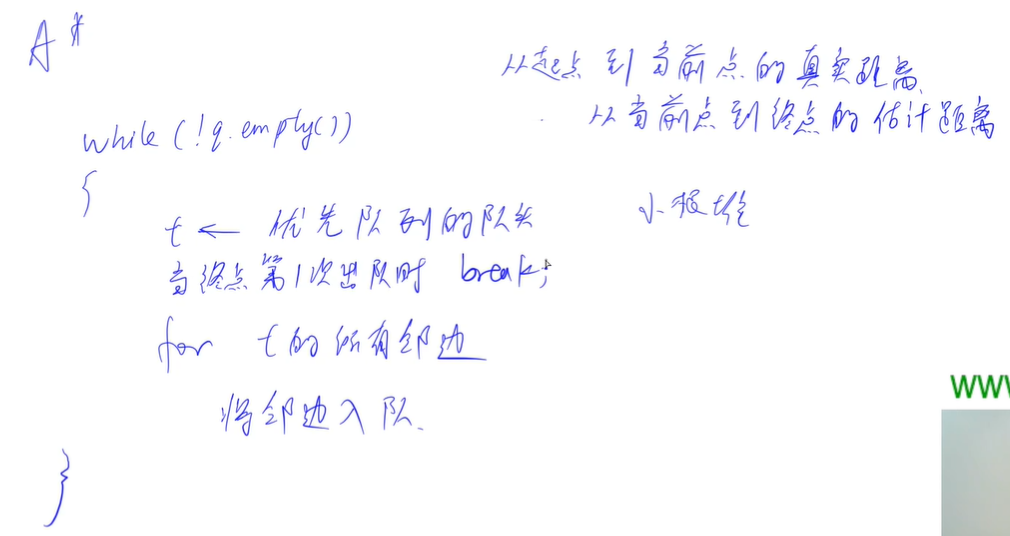 A*
从起点到当前点的真实距离
从当前点到终点的估计距离
while (!q.empty())
{
小根堆
t ← 优先队列的队头
当终点第1次出队时 break;
for t的所有邻边
将邻边入队.
}
WWW